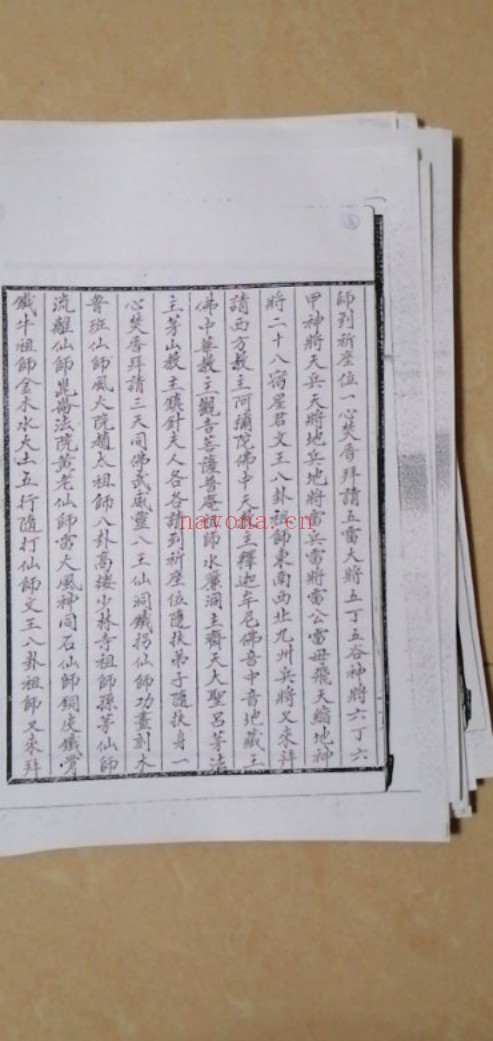 師到祈座位一心焚香拜請五雷大將五丁五谷神將六丁六
甲神將天兵天將地兵地將雷兵雷將雷公雷母飛天縮地神
將二十八宿星君文王八卦祖師東南西北九州兵將又來拜
請西方教主阿彌陀佛中天教主釋迦牟尼佛音中音地藏王
佛中華教主觀音菩薩普庵祖師水簾洞主齊天大聖呂茅法
主茅山教主鎮針夫人各各請到祈座位隨扶弟子隨扶身一
心焚香拜請三天同佛武威靈八王仙洞鐵拐仙師功畫刻木
魯班仙師風火院趙太祖師八卦高樓少林寺祖師孫茅仙師
流離仙師崑崙法院黃老仙師雷火風神同石仙師銅皮鐵骨
鐵牛祖師金木水火土五行隨打仙師文王八卦祖師又來拜
navona.cn